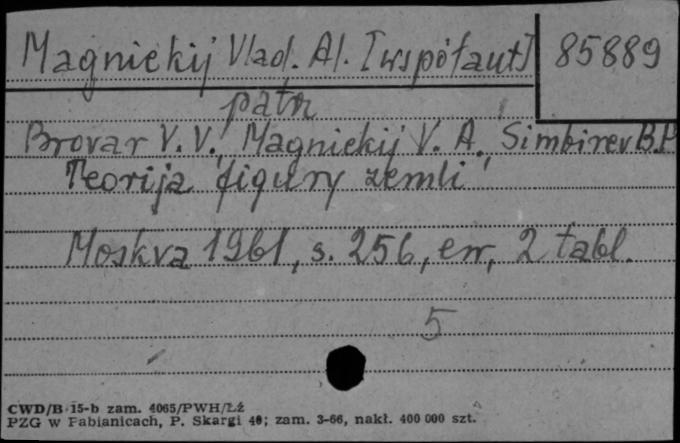 Magnickij Vlad. Al. [współaut] 85889
patrz
Brovar V. V., Magnickij V. A., Simbirev B.P.
Teorija figury zemli
Moskva 1961, s. 256, err, 2 tabl.
5
CWD/B 15-b zam. 4065/PWH/Łź
PZG w Pabianicach, P. Skargi 40; zam. 3-66, nakł. 400 000 szt.